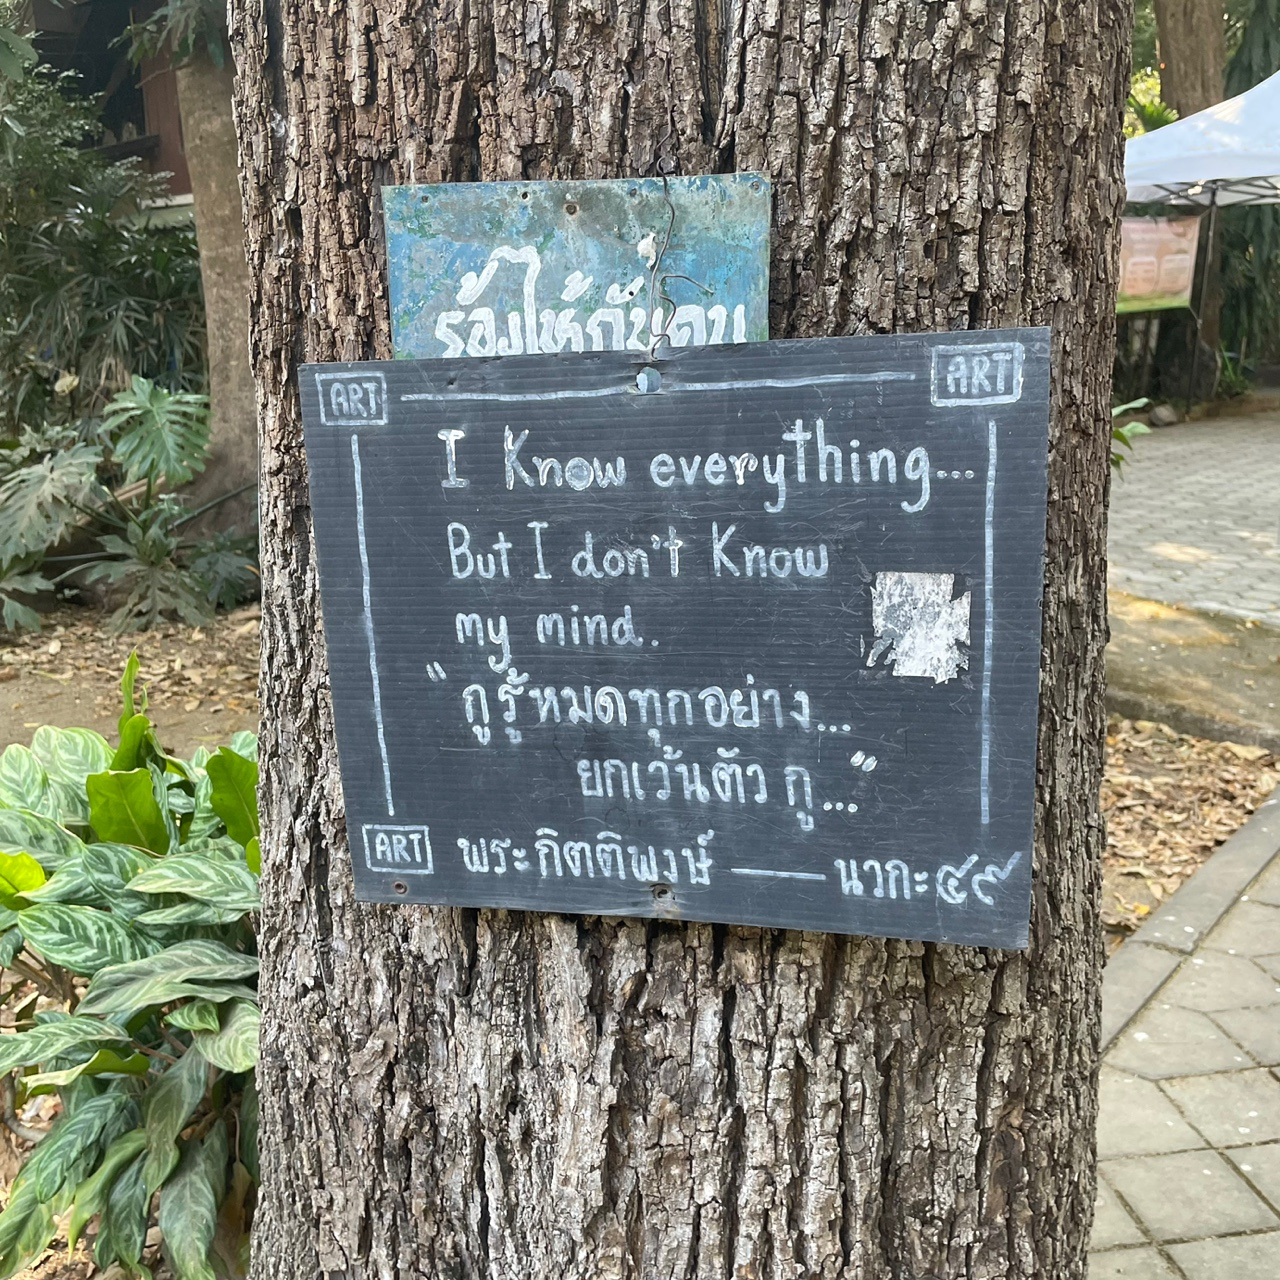 ร้องไห้กับคน
ART ART
I Know everything...
But I don't Know
my mind.
"กูรู้หมดทุกอย่าง...
ยกเว้นตัวกู..."
ART พระกิตติพงษ์ — นวกะ๔๙